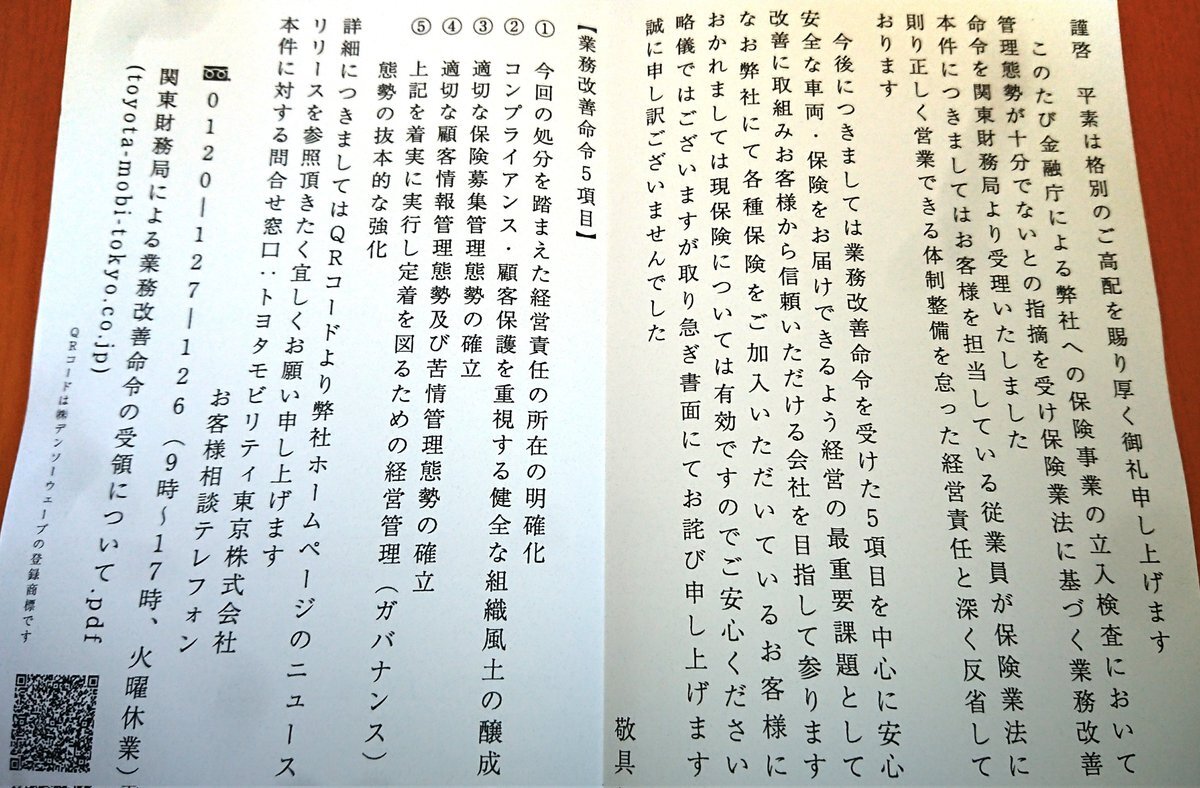 謹啓　平素は格別のご高配を賜り厚く御礼申し上げます
このたび金融庁による弊社への保険事業の立入検査において
管理態勢が十分でないとの指摘を受け保険業法に基づく業務改善
命令を関東財務局より受理いたしました
本件につきましてはお客様を担当している従業員が保険業法に
則り正しく営業できる体制整備を怠った経営責任と深く反省して
おります
今後につきましては業務改善命令を受けた5項目を中心に安心
安全な車両・保険をお届けできるよう経営の最重要課題として
改善に取組みお客様から信頼いただける会社を目指して参ります
なお弊社にて各種保険をご加入いただいているお客様に
おかれましては現保険については有効ですのでご安心ください
略儀ではございますが取り急ぎ書面にてお詫び申し上げます
誠に申し訳ございませんでした
敬具
【業務改善命令5項目】
① 今回の処分を踏まえた経営責任の所在の明確化
② コンプライアンス・顧客保護を重視する健全な組織風土の醸成
③ 適切な保険募集管理態勢の確立
④ 適切な顧客情報管理態勢及び苦情管理態勢の確立
⑤ 上記を着実に実行し定着を図るための経営管理（ガバナンス）
態勢の抜本的な強化
詳細につきましてはQRコードより弊社ホームページのニュース
リリースを参照頂きたく宜しくお願い申し上げます
本件に対する問合せ窓口：トヨタモビリティ東京株式会社
お客様相談テレフォン
0120―127―126（9時～17時、火曜休業）
関東財務局による業務改善命令の受領について.pdf
(toyota-mobi-tokyo.co.jp)
QRコードは㈱デンソーウェーブの登録商標です